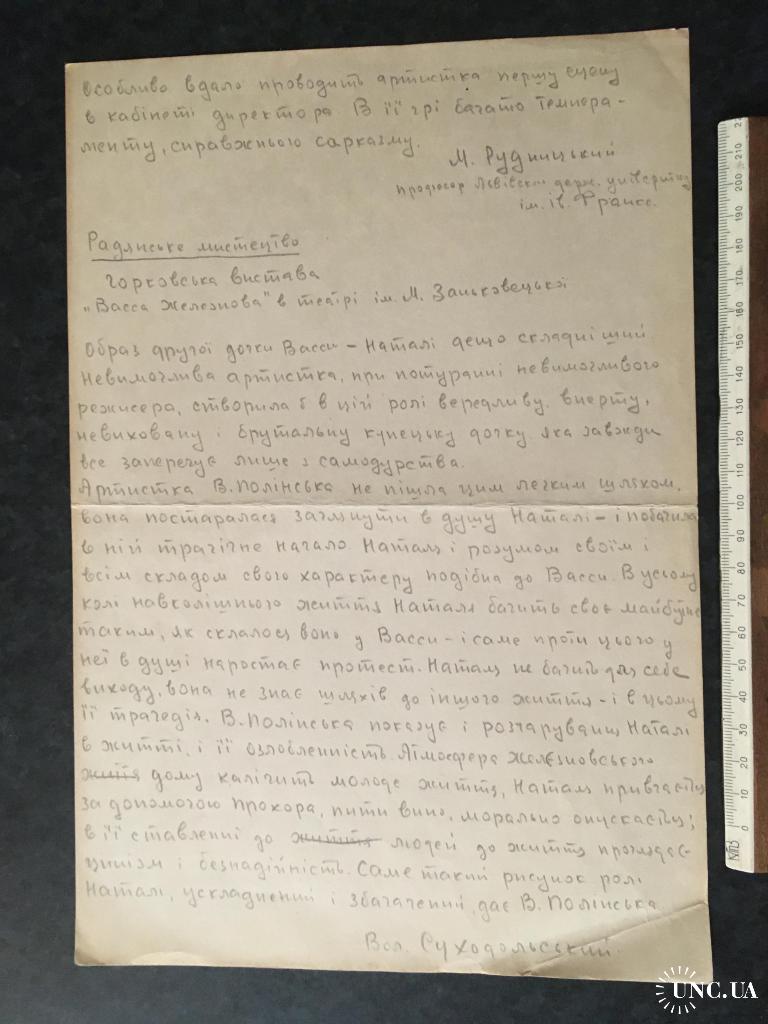 особливо вдало проводить артистка першу сцену
в кабінеті директора. В її грі багато темпера-
менту, справжнього сарказму.
М. Рудницький
професор Львівськ держ. університу
ім. Ів. Франс.
Радянське мистецтво
Горковська вистава
"Васса Желєзнова" в театрі ім. М. Заньковецької
Образ другої дочки Васси – Наталі дещо складніший.
Невимоглива артистка, при потуранні невимогливого
режисера, створила б в цій ролі вередливу, вперту,
невиховану і брутальну купецьку дочку, яка завжди
все заперечує лише з самодурства.
Артистка В. Полінська не пішла цим легким шляхом.
вона постаралася заглянути в душу Наталі – і побачила
в ній трагічне начало. Наталя і розумом своїм і
всім складом свого характеру подібна до Васси. В усьому
колі навколішнього життя Наталя бачить своє майбутнє
таким, як склалося воно у Васси – і саме проти цього у
неї в душі наростає протест. Наталя не бачить для себе
виходу, вона не знає шляхів до іншого життя – і в цьому
її трагедія. В. Полінська показує і розчарування Наталі
в житті, і її озлобленність. Атмосфера Желєзновського
життя дому калічить молоде життя, Наталя привчається
за допомогою Прохора, пити вино, морально опускається;
в її ставленні до життя людей до життя проглядає-
цинізм і безнадійність. Саме такий рисунок ролі
Наталі, ускладнений і збагачений, дає В. Полінська.
Вол. Суходольський.
UNC.UA
0 10 20 30 40 50 60 70 80 90 100 110 120 130 140 150 160 170 180 190 200 210